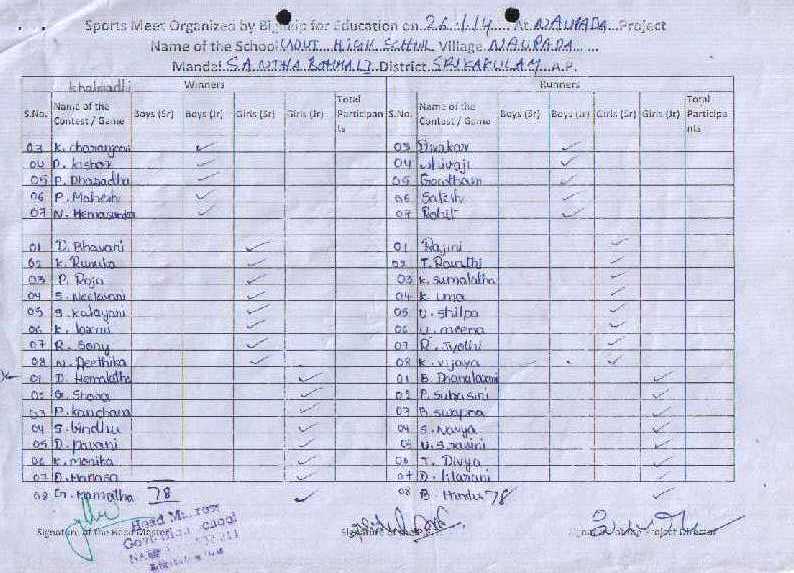 Sports Meet Organized by Big Help for Education on 26.1.14 At NAUPADA Project
Name of the School GOVT HIGH SCHOOL Village NAUPADA
Mandal SANTHA BOMMALI District SRIKAKULAM A.P.
Winners Runners
S.No. Name of the Contest / Game Boys (Sr) Boys (Jr) Girls (Sr) Girls (Jr) Total Participants S.No. Name of the Contest / Game Boys (Sr) Boys (Jr) Girls (Sr) Girls (Jr) Total Participants
03 K. charanjeevi ✓ 03 Divakar ✓
04 D. kishor ✓ 04 shivaji ✓
05 P. Dhasadha ✓ 05 Gowtham ✓
06 P. Mahesh ✓ 06 Satish ✓
07 N. Hemasundar ✓ 07 Rohit ✓
01 D. Bhavani ✓ 01 Rajini ✓
02 K. ✓ 02 T. ✓
03 P. Roja ✓ 03 K. sumalatha ✓
04 S. Neelaveni ✓ 04 K. uma ✓
05 S. kalayani ✓ 05 U. shilpa ✓
06 K. laxmi ✓ 06 U. meena ✓
07 R. Sony ✓ 07 R. Jyothi ✓
08 N. Deethika ✓ 08 K. vijaya ✓
01 D. Hemalatha ✓ 01 B. Dhanalaxmi ✓
02 G. ✓ 02 P. Subasini ✓
03 P. kanchana ✓ 03 B. swapna ✓
04 S. bindhu ✓ 04 S. Navya ✓
05 D. pavani ✓ 05 U. S ✓
06 K. monika ✓ 06 T. Divya ✓
07 D. Manasa ✓ 07 D. ✓
08 G. Mamatha 78 ✓ 08 B. 78 ✓
Head Master
Govt. High School
Signature of the Head Master Signature of the Signature of Project Director